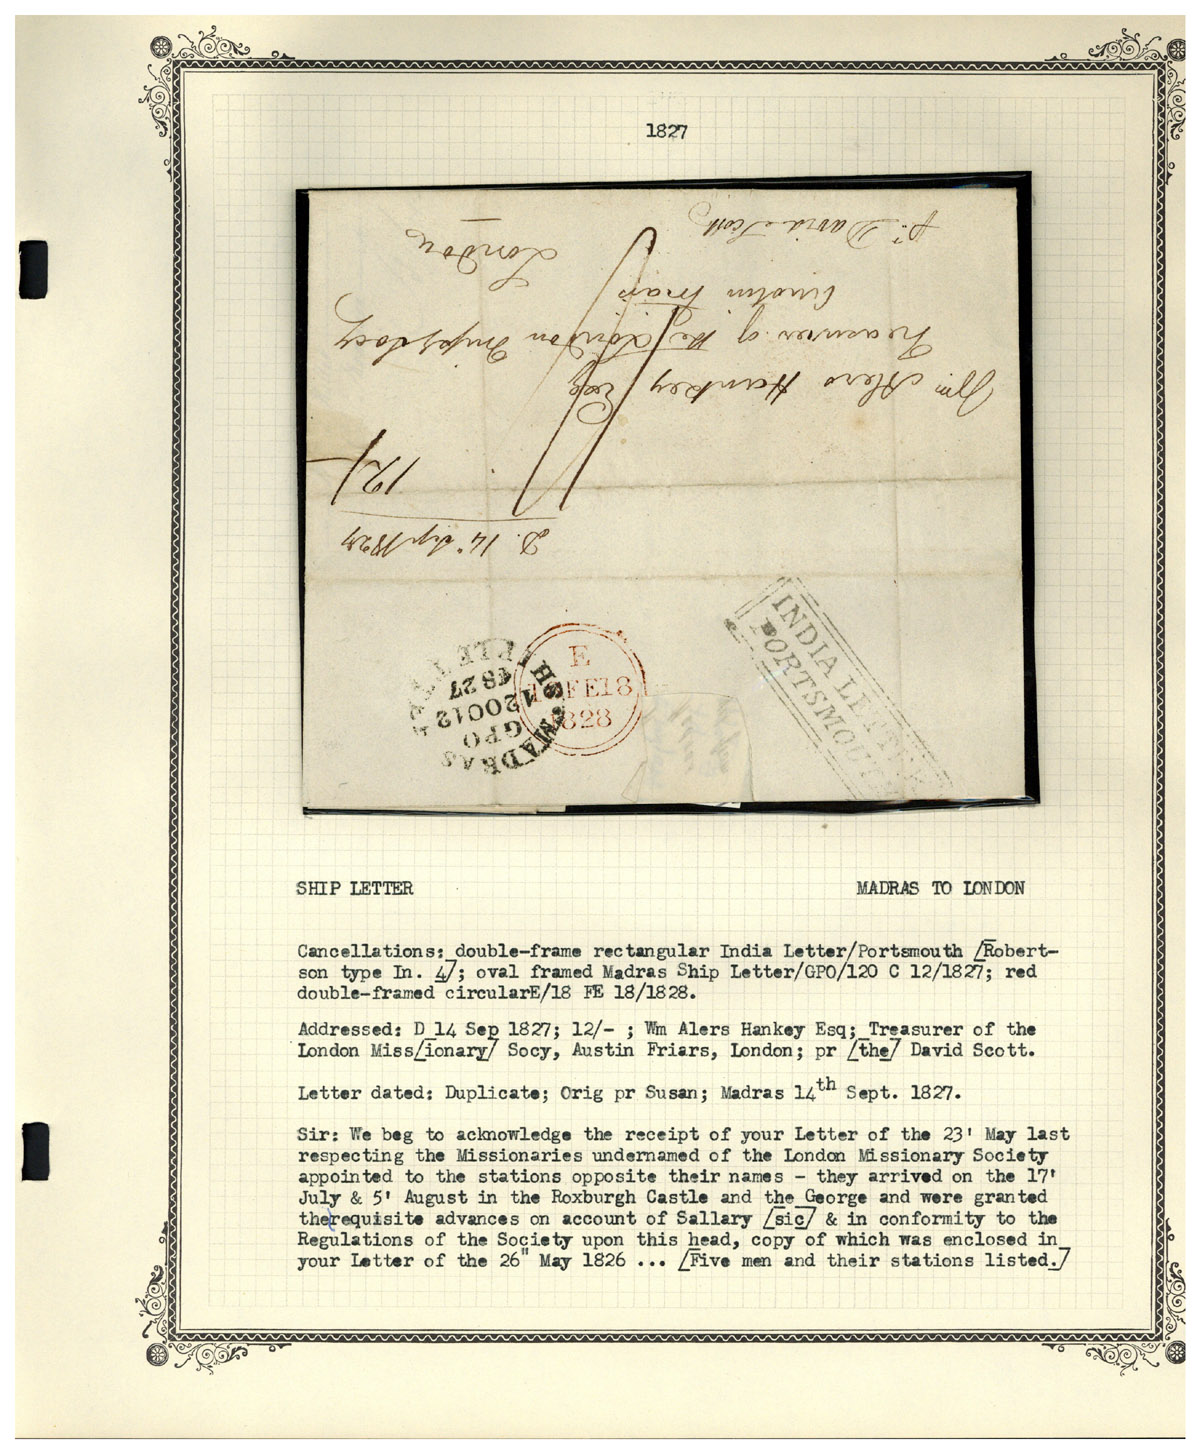 1827
pr. David Scott
London
Austin Friars
Treasurer of the London Missy Socy
Wm Alers Hankey Esq
12/-
D. 14 Sep 1827
INDIA LETTER
PORTSMOUTH
E
FE 18
1828
MADRAS
SHIP LETTER
GPO
120C12
1827
SHIP LETTER
MADRAS TO LONDON
Cancellations: double-frame rectangular India Letter/Portsmouth [Robert-
son type In. 4]; oval framed Madras Ship Letter/GPO/120 C 12/1827; red
double-framed circularE/18 FE 18/1828.
Addressed: D 14 Sep 1827; 12/- ; Wm Alers Hankey Esq; Treasurer of the
London Miss[ionary] Socy, Austin Friars, London; pr [the] David Scott.
Letter dated: Duplicate; Orig pr Susan; Madras 14th Sept. 1827.
Sir: We beg to acknowledge the receipt of your Letter of the 23' May last
respecting the Missionaries undernamed of the London Missionary Society
appointed to the stations opposite their names - they arrived on the 17'
July & 5' August in the Roxburgh Castle and the George and were granted
therequisite advances on account of Sallary [sic] & in conformity to the
Regulations of the Society upon this head, copy of which was enclosed in
your Letter of the 26" May 1826 ... [Five men and their stations listed.]